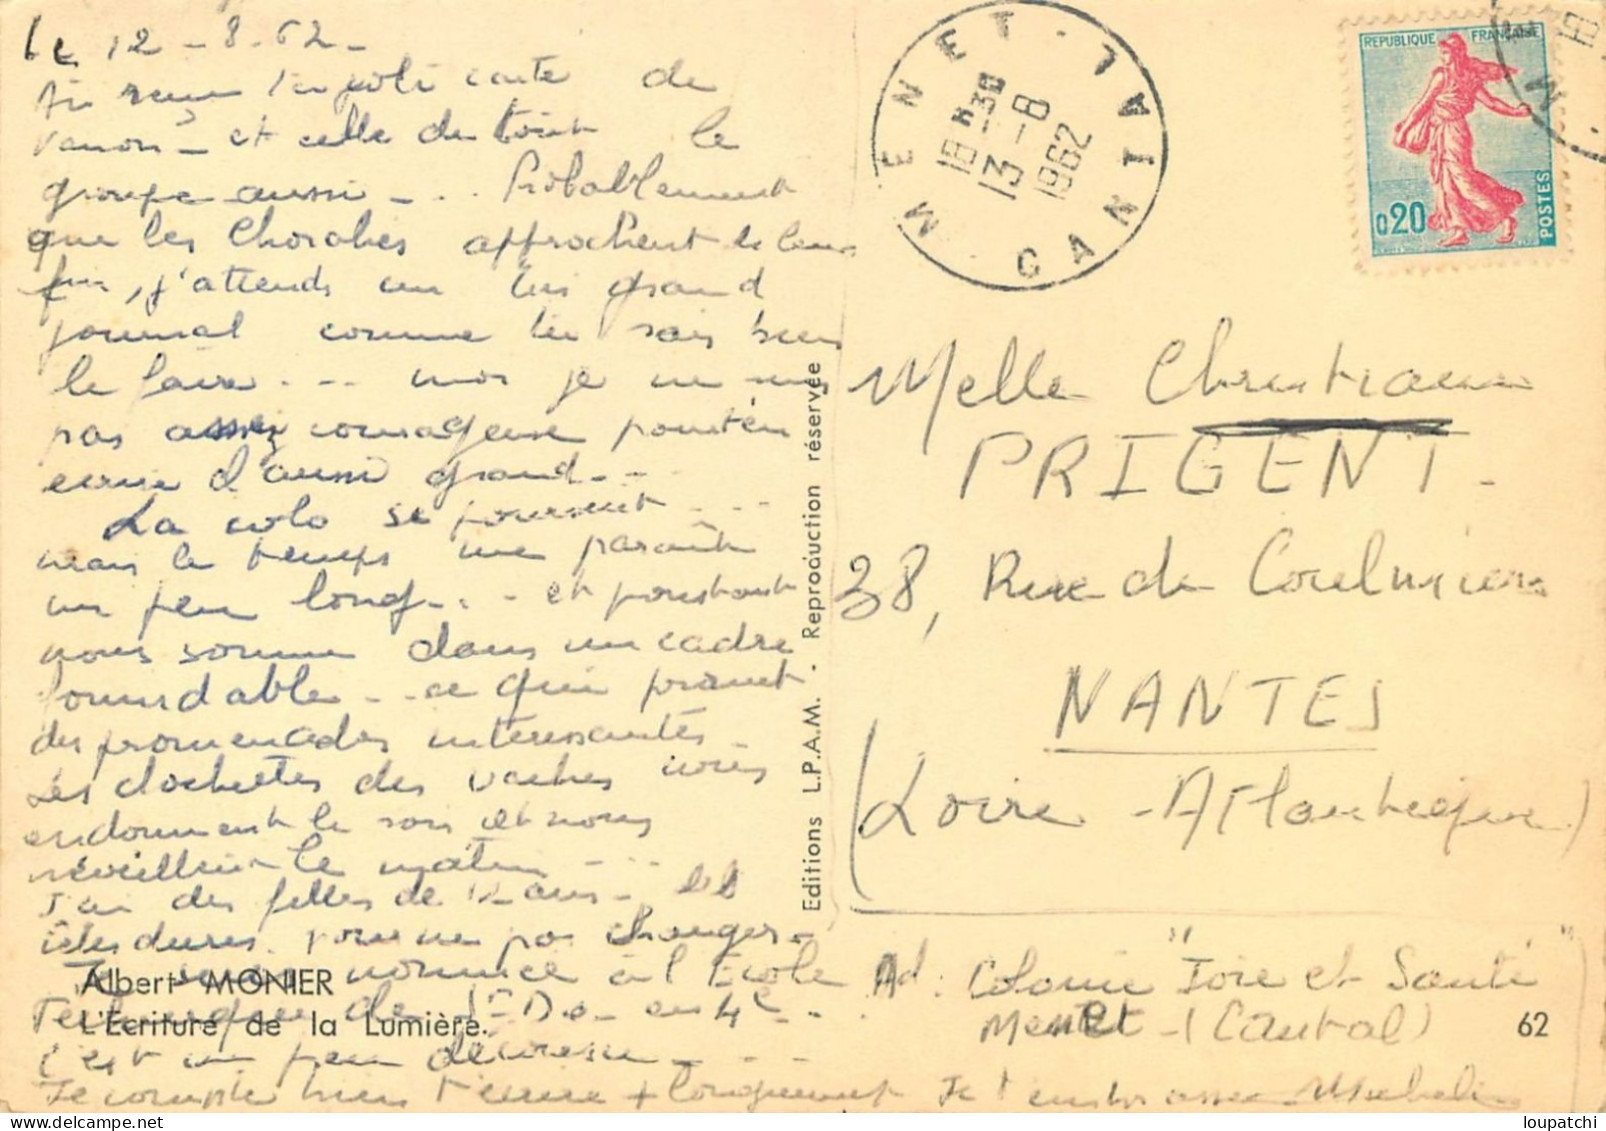 Le 12-8-62-
Ai reçu la jolie carte de
vanon - et celle de tout le
groupe aussi - ... Probablement
que les Chorales approchent de leur
fin, j'attends un très grand
journal comme tu sais bien
le faire ... moi je ne suis
pas assez courageuse pour t'en
écrire d'aussi grand...
La colo se poursuit ...
mais le temps me paraît
un peu long... et pourtant
nous somme dans un cadre
formidable ... ce qui promet
des promenades interessantes.
Les clochettes des vaches nous
endorment le soir et nous
réveillent le matin ...
J'ai des filles de 12 ans - 
dures. pour ne pas changer.
Je suis nommée à l'Ecole
Technique de St Do en 4e ...
c'est un peu 
Je compte bien t'ecrire + longuement Je t'embrasse Micheline
Albert MONIER
L'Ecriture de la Lumière.
Editions L.P.A.M. . Reproduction réservée
MENET . CANTAL
18H30
13-8
1962
REPUBLIQUE FRANÇAISE
0,20
POSTES
Melle Christiane
PRIGENT -
38, Rue de Coulmiers
NANTES
(Loire - Atlantique)
Ad : Colonie "Joie et Santé"
Menet - (Cantal)
62
loupatchi